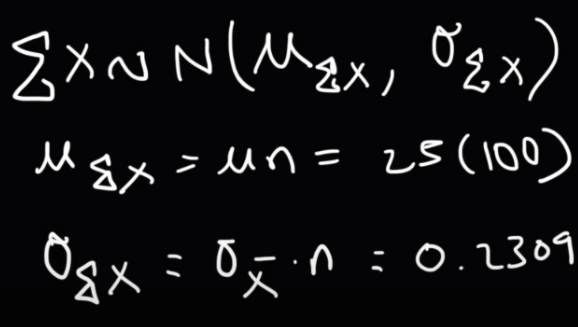 ΣX ~ N(μ_ΣX, σ_ΣX)
μ_ΣX = μn = 25(100)
σ_ΣX = σ_x̄ · n = 0.2309